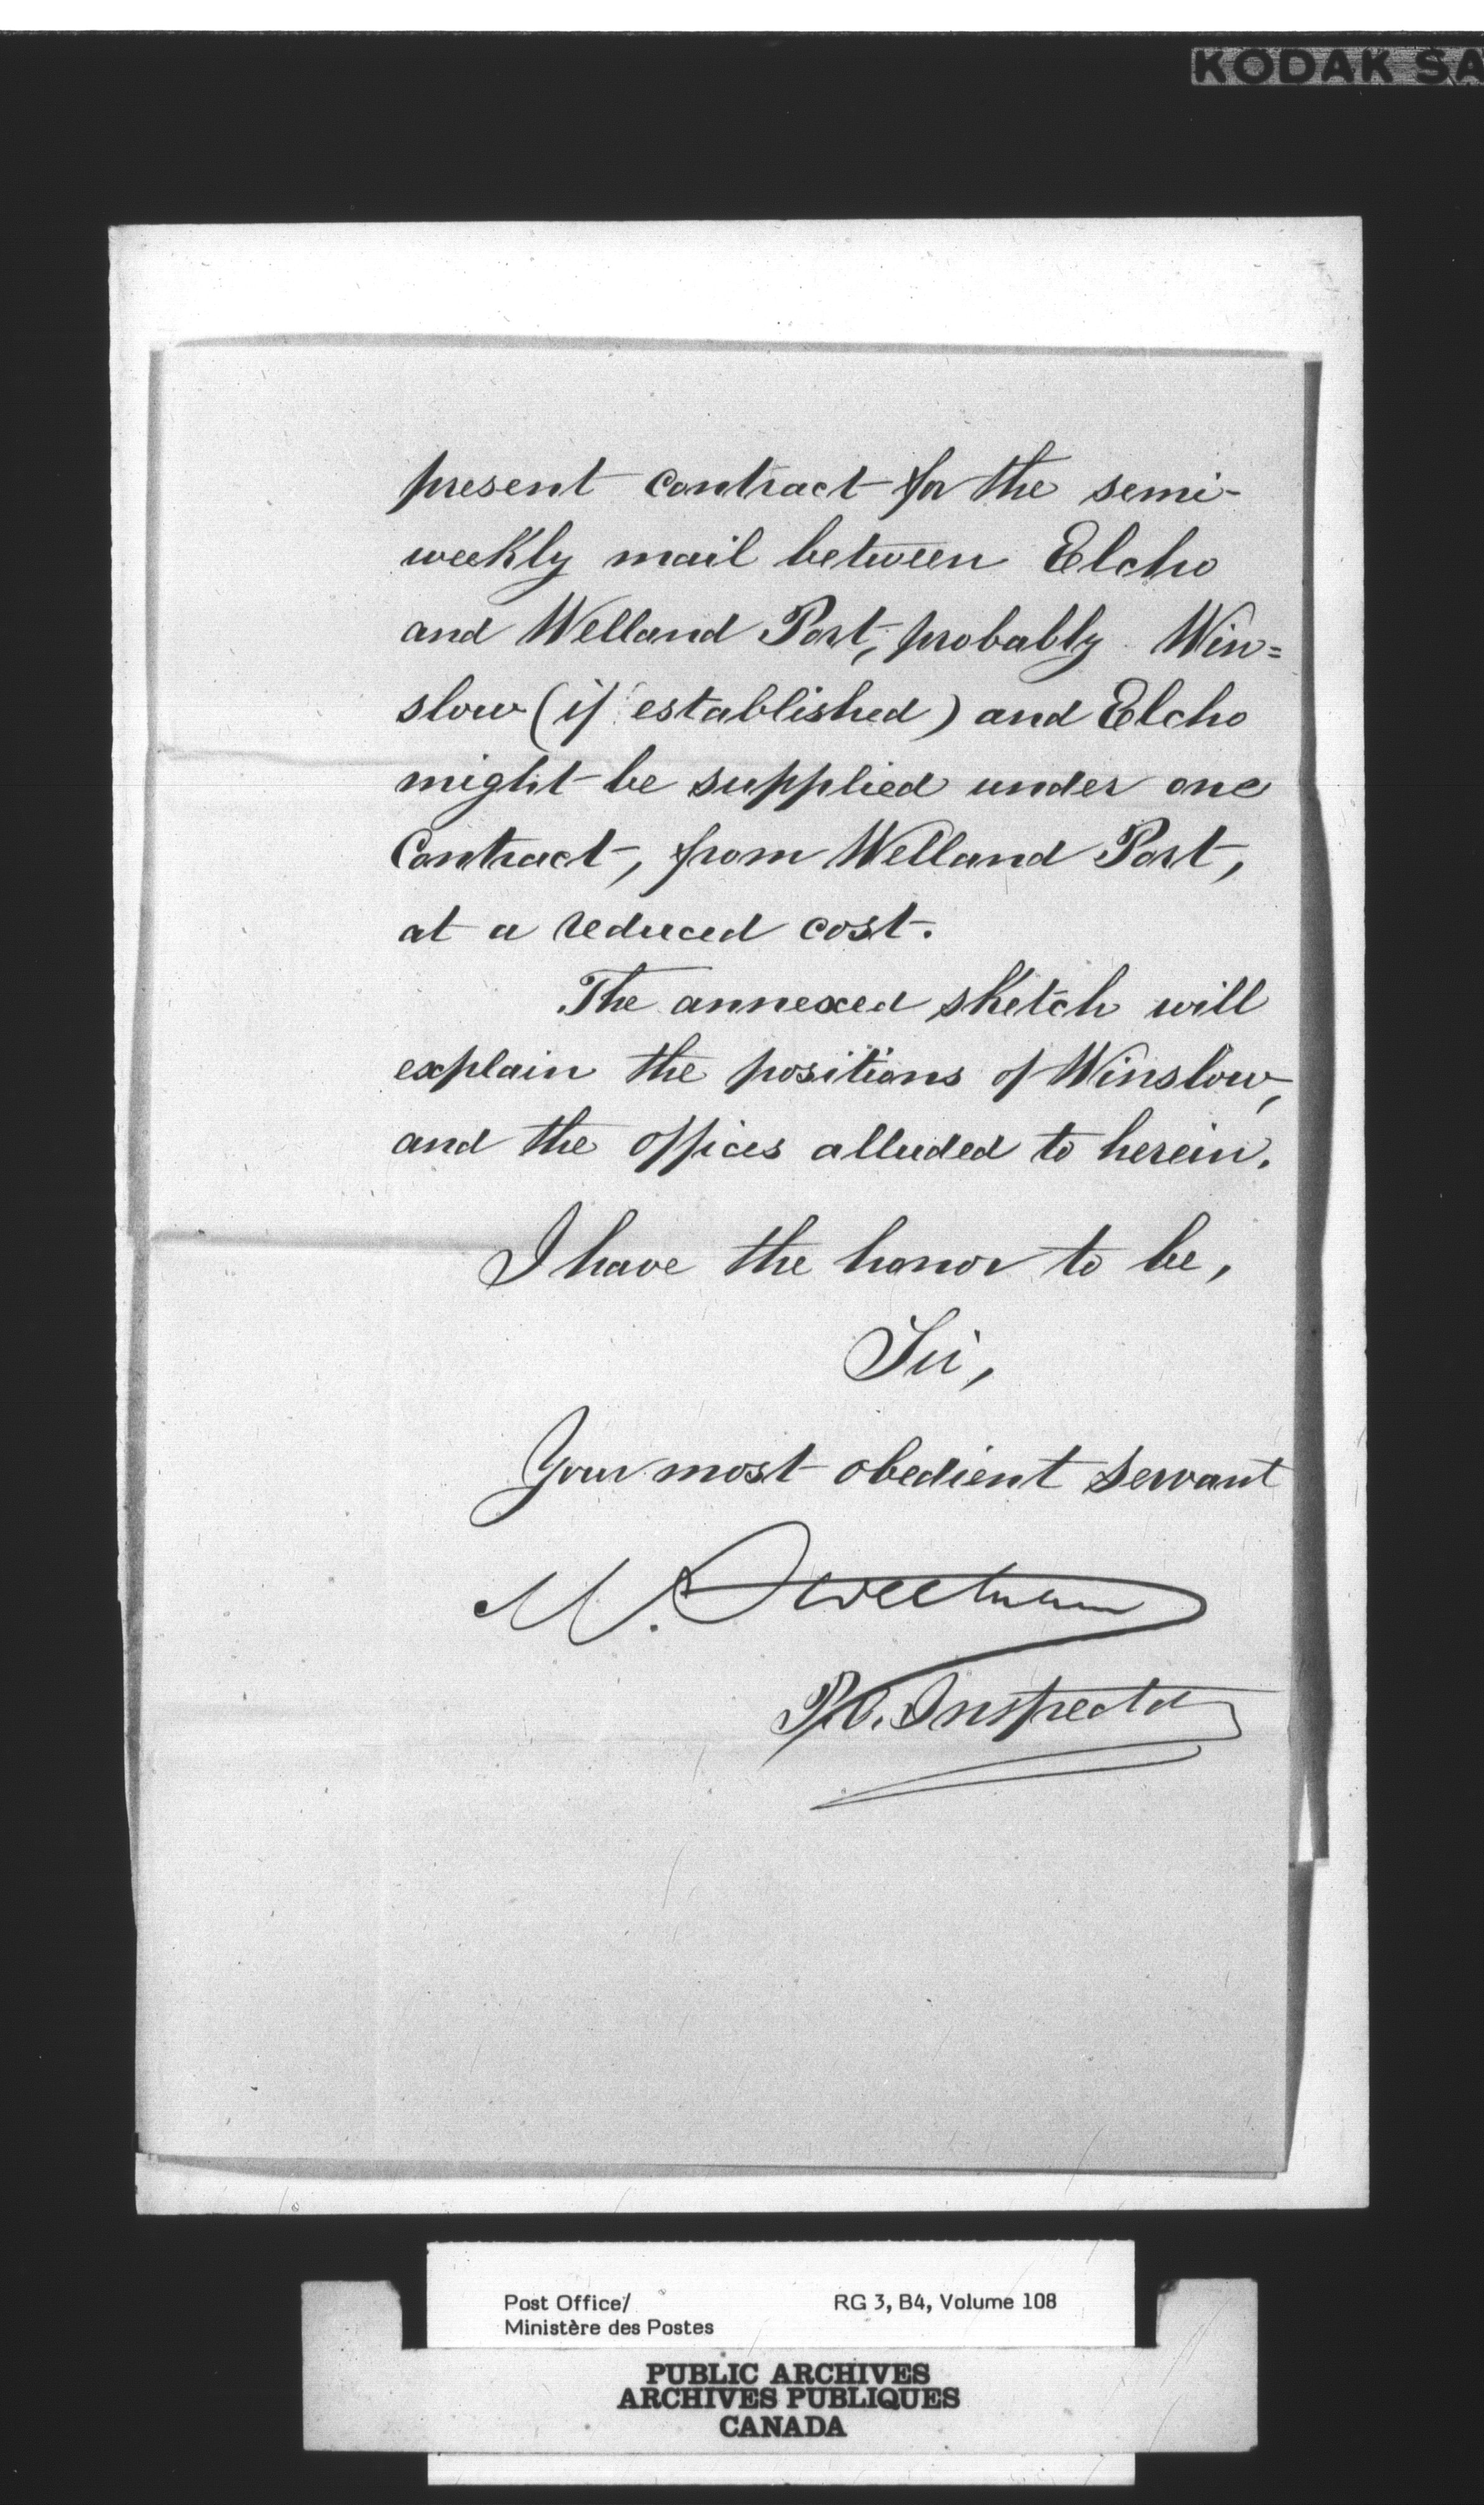 KODAK SA
present contract for the semi-
weekly mail between Elcho
and Welland Port, probably Win=
slow (if established) and Elcho
might be supplied under one
Contract, from Welland Port,
at a reduced cost.
The annexed sketch will
explain the positions of Winslow,
and the offices alluded to herein.
I have the honor to be,
Sir,
Your most obedient servant
M. Sweetnam
P.O. Inspector
Post Office/ RG 3, B4, Volume 108
Ministère des Postes
PUBLIC ARCHIVES
ARCHIVES PUBLIQUES
CANADA